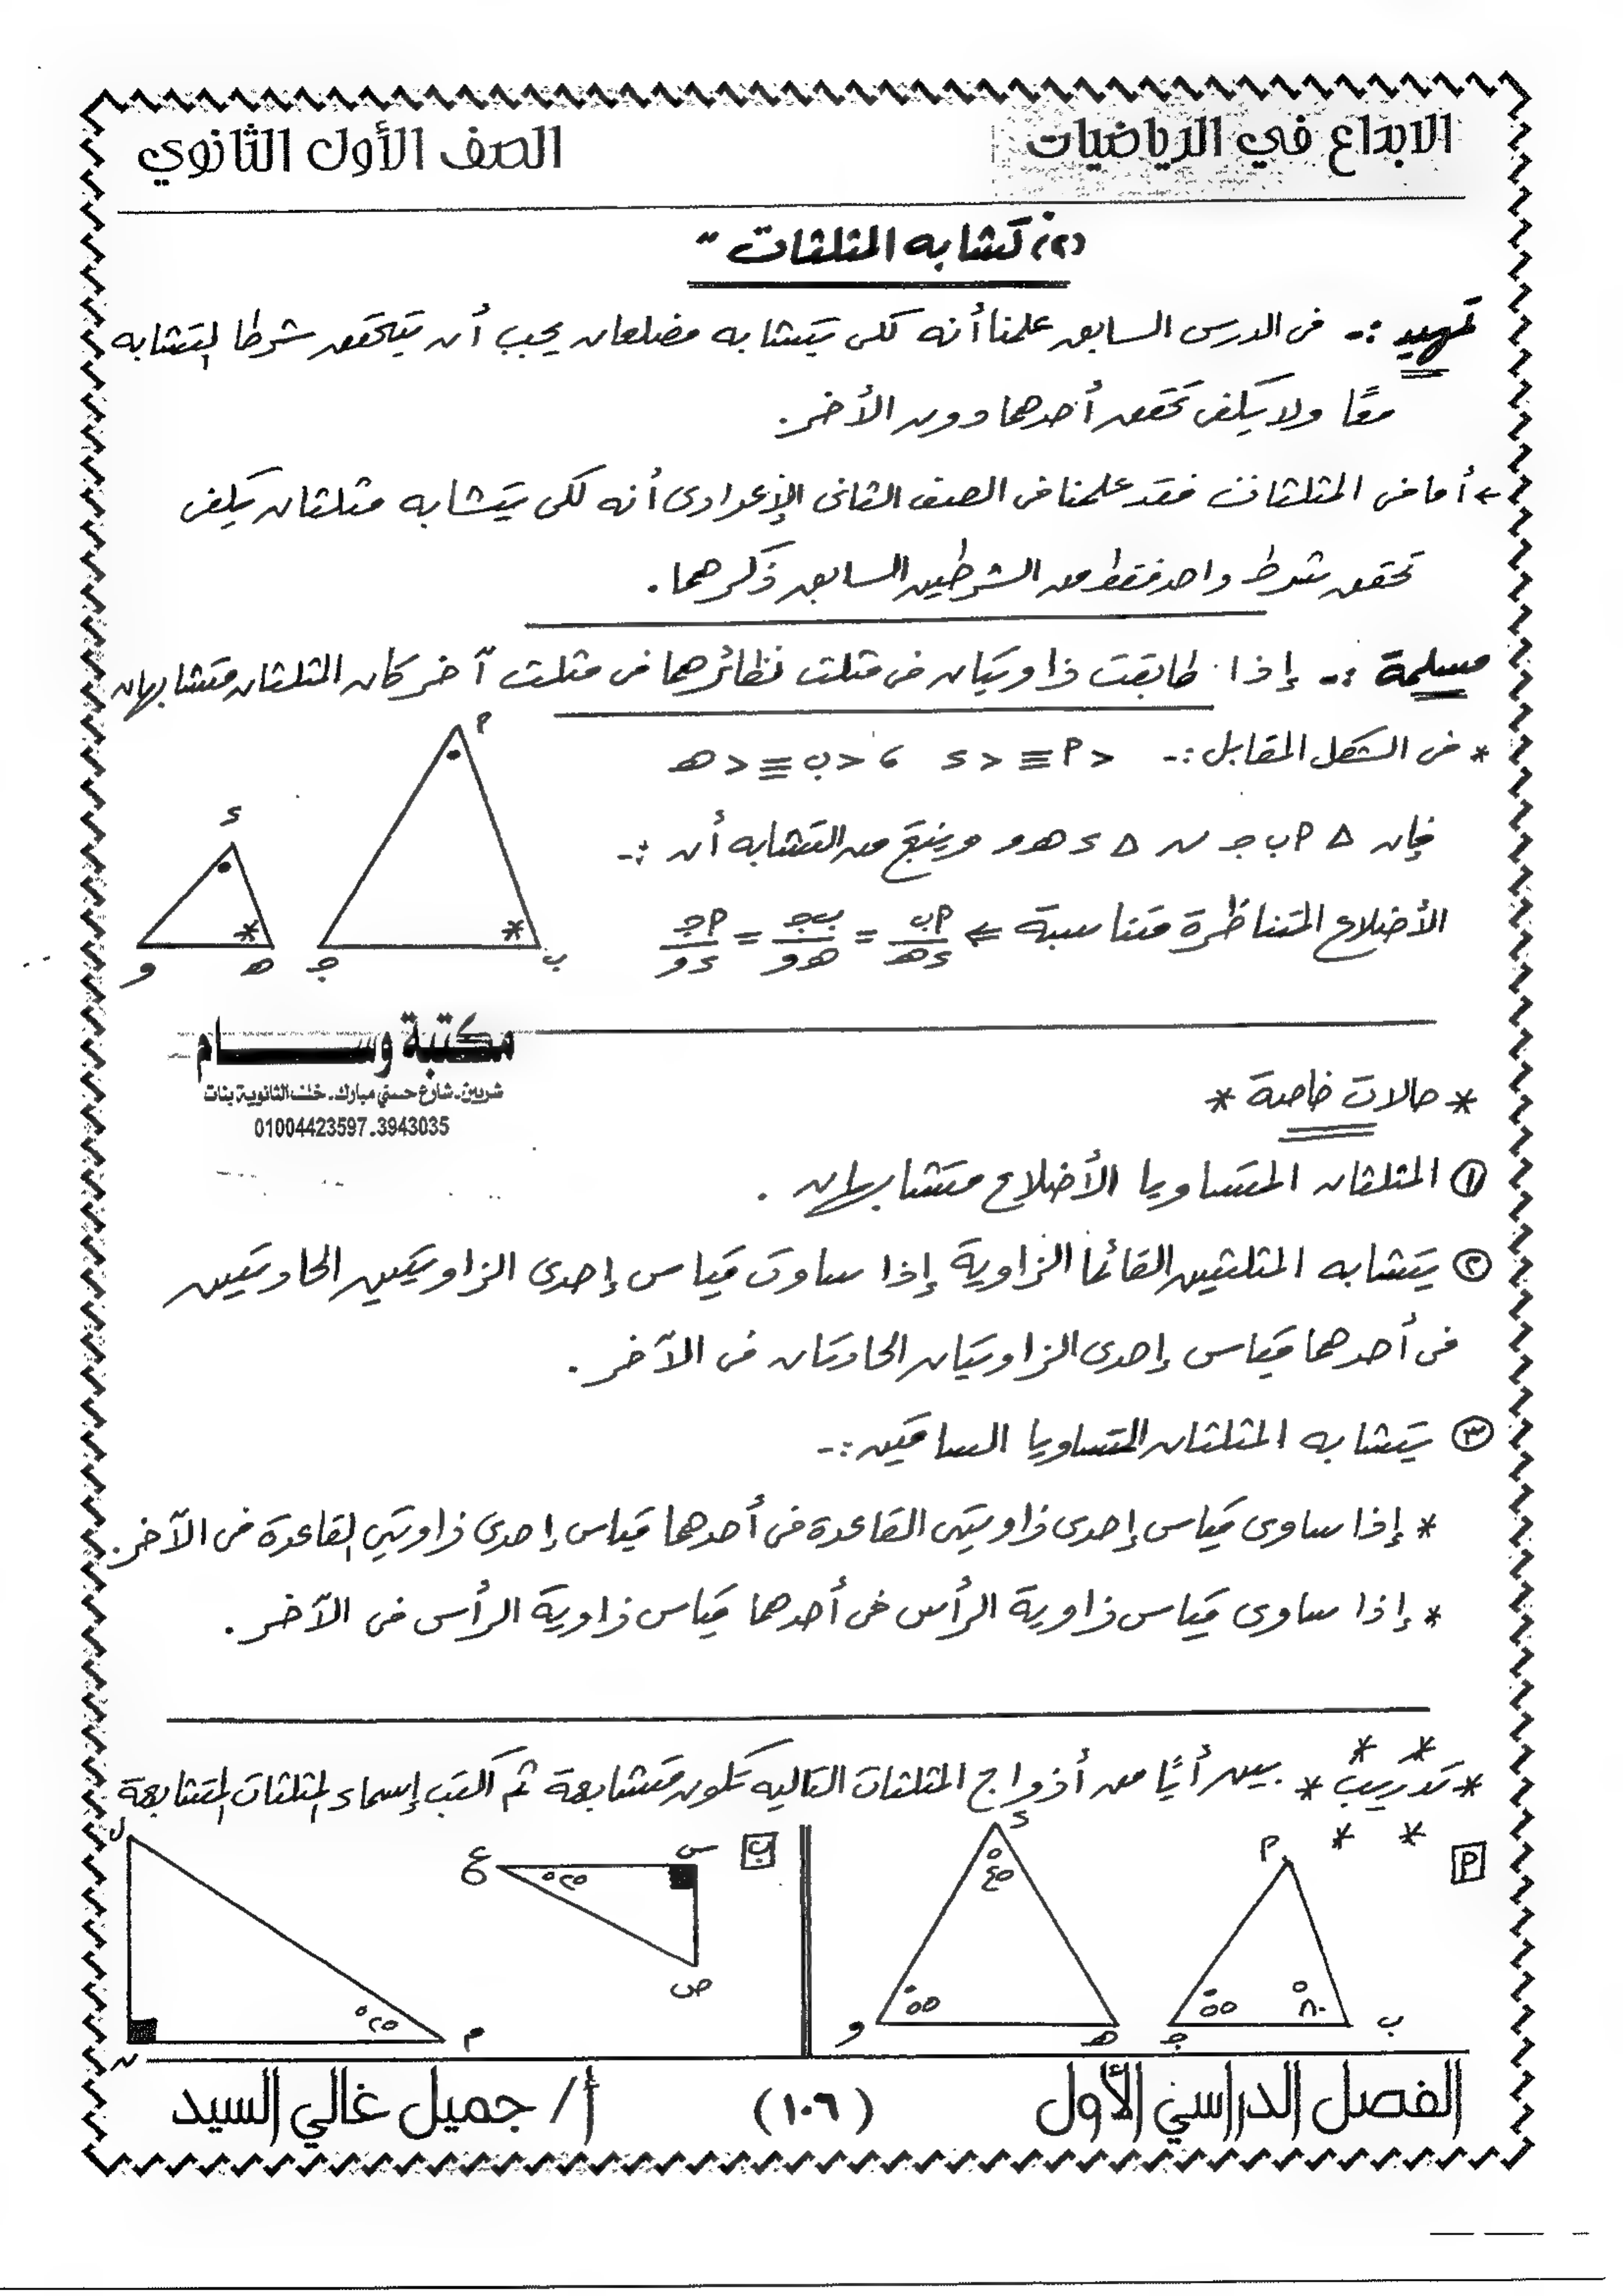 الابداع في الرياضيات
الصف الأول الثانوي
(٢) تشابه المثلثات
تمهيد :- فى الدرس السابق علمنا أنه لكى يتشابه مضلعان يجب أن يتحقق شرطا التشابه
معًا ولا يكفى تحقق أحدهما دون الأخر.
← أما فى المثلثات فقد علمنا فى الصف الثانى الإعدادى أنه لكى يتشابه مثلثان يكفى
تحقق شرط واحد فقط من الشرطين السابق ذكرهما.
مسلمة :- إذا طابقت زاويتان فى مثلث نظائرهما فى مثلث آخر كان المثلثان متشابهان
* فى الشكل المقابل :- > م ≡ > ء ، > ب ≡ > ه
فإن Δ م ب ج ~ Δ ء ه و وينتج من التشابه أن :-
الأضلاع المتناظرة متناسبة ⇐ م ب / ء ه = ب ج / ه و = م ج / ء و
م
ب
ج
ء
ه
و
مكتبة وســـام
شربين - شارع حسني مبارك - خلف الثانوية بنات
01004423597 - 3943035
* حالات خاصة *
١ المثلثان المتساويا الأضلاع متشابهان .
٢ يتشابه المثلثين القائما الزاوية إذا ساوت قياس إحدى الزاويتين الحادتين
فى أحدهما قياس إحدى الزاويتان الحادتان فى الآخر .
٣ يتشابه المثلثان المتساويا الساقين :-
* إذا ساوى قياس إحدى زاويتى القاعدة فى أحدهما قياس إحدى زاويتى القاعدة فى الآخر.
* إذا ساوى قياس زاوية الرأس فى أحدهما قياس زاوية الرأس فى الآخر .
* تدريب * بين أيًا من أزواج المثلثات التاليه تكون متشابهة ثم اكتب إسماء المثلثات المتشابهة
م
م
٨٠°
٥٥°
ب
ج
ء
٤٥°
٥٥°
ه
و
ب
س
ع
٢٥°
ص
ل
٢٥°
م
ن
الفصل الدراسي الأول
(١٠٦)
أ/ جميل غالي السيد